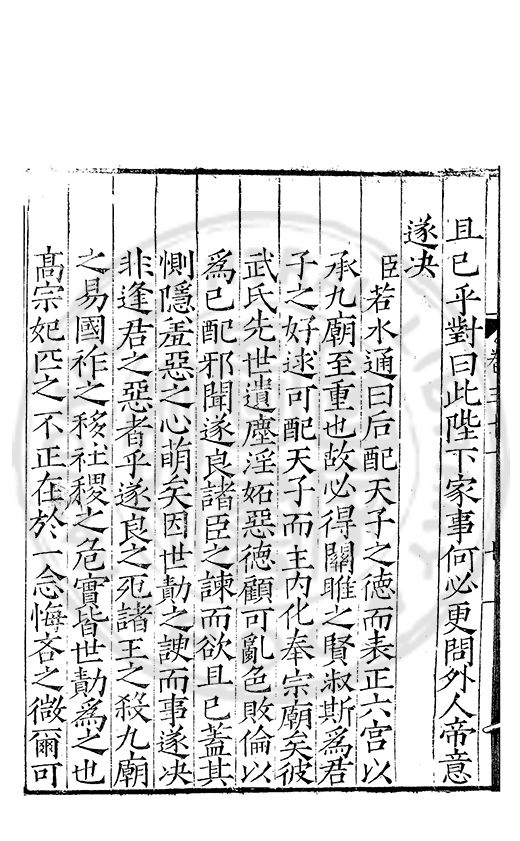 且已乎對曰此陛下家事何必更問外人帝意
遂决
臣若水通曰后配天子之德而表正六宫以
承九廟至重也故必得關雎之賢叔斯爲君
子之好逑可配天子而主内化奉宗廟矣彼
武氏先世遺塵淫妬惡德顧可亂色敗倫以
爲已配邪聞遂良諸臣之諫而欲且已蓋其
惻隱羞惡之心萌矣因世勣之諛而事遂决
非逢君之惡者乎遂良之死諸王之殺九廟
之易國祚之移社稷之危實皆世勣爲之也
髙宗妃匹之不正在於一念悔吝之微爾可